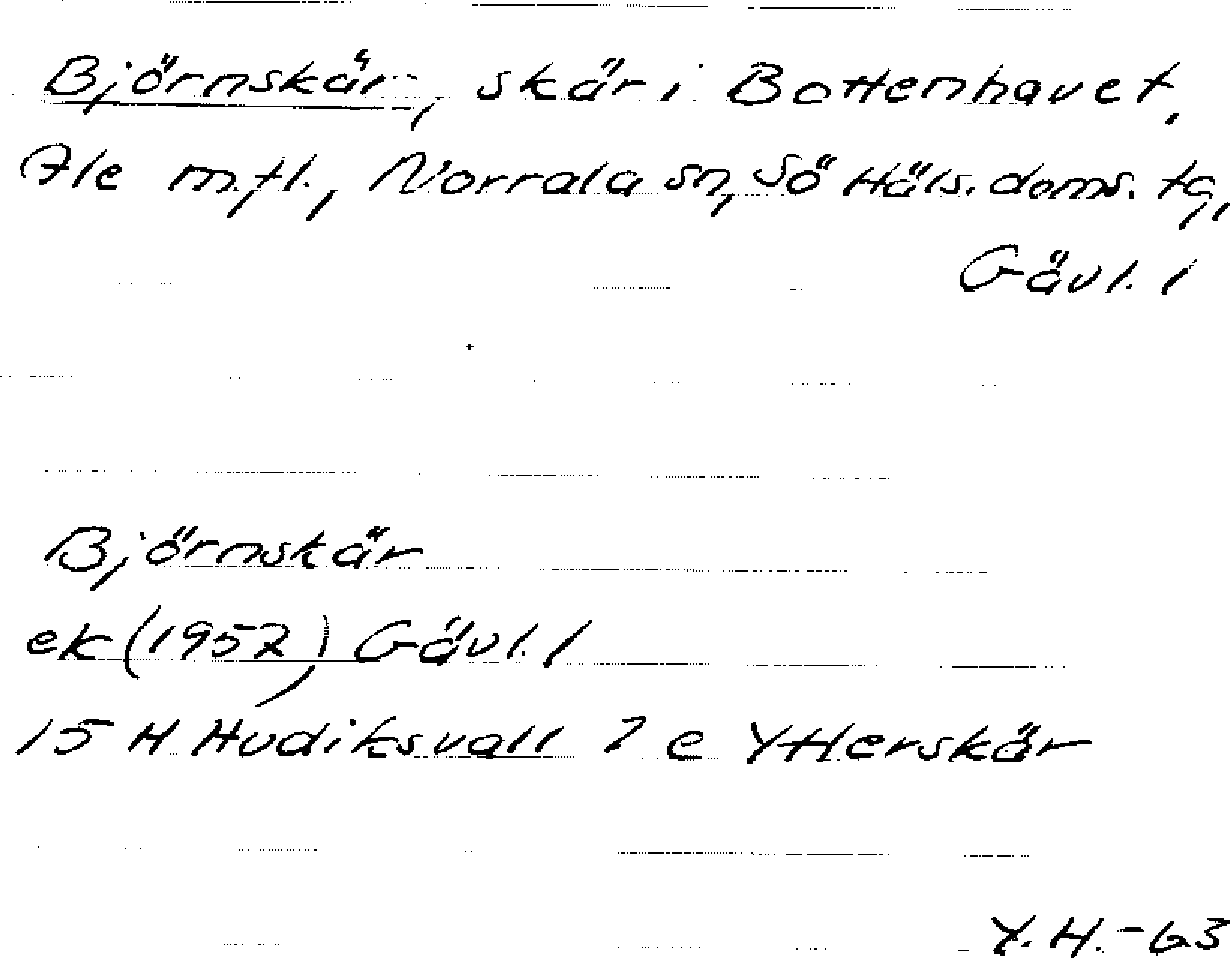 Björnskär, skär i Bottenhavet,
7le m.fl., Norrala sn, Sö Häls. doms. tg,
Gävl. l
Björnskär
ek (1957) Gävl. l
15 H Hudiksvall 7 e Ytterskär
Y.H.-63